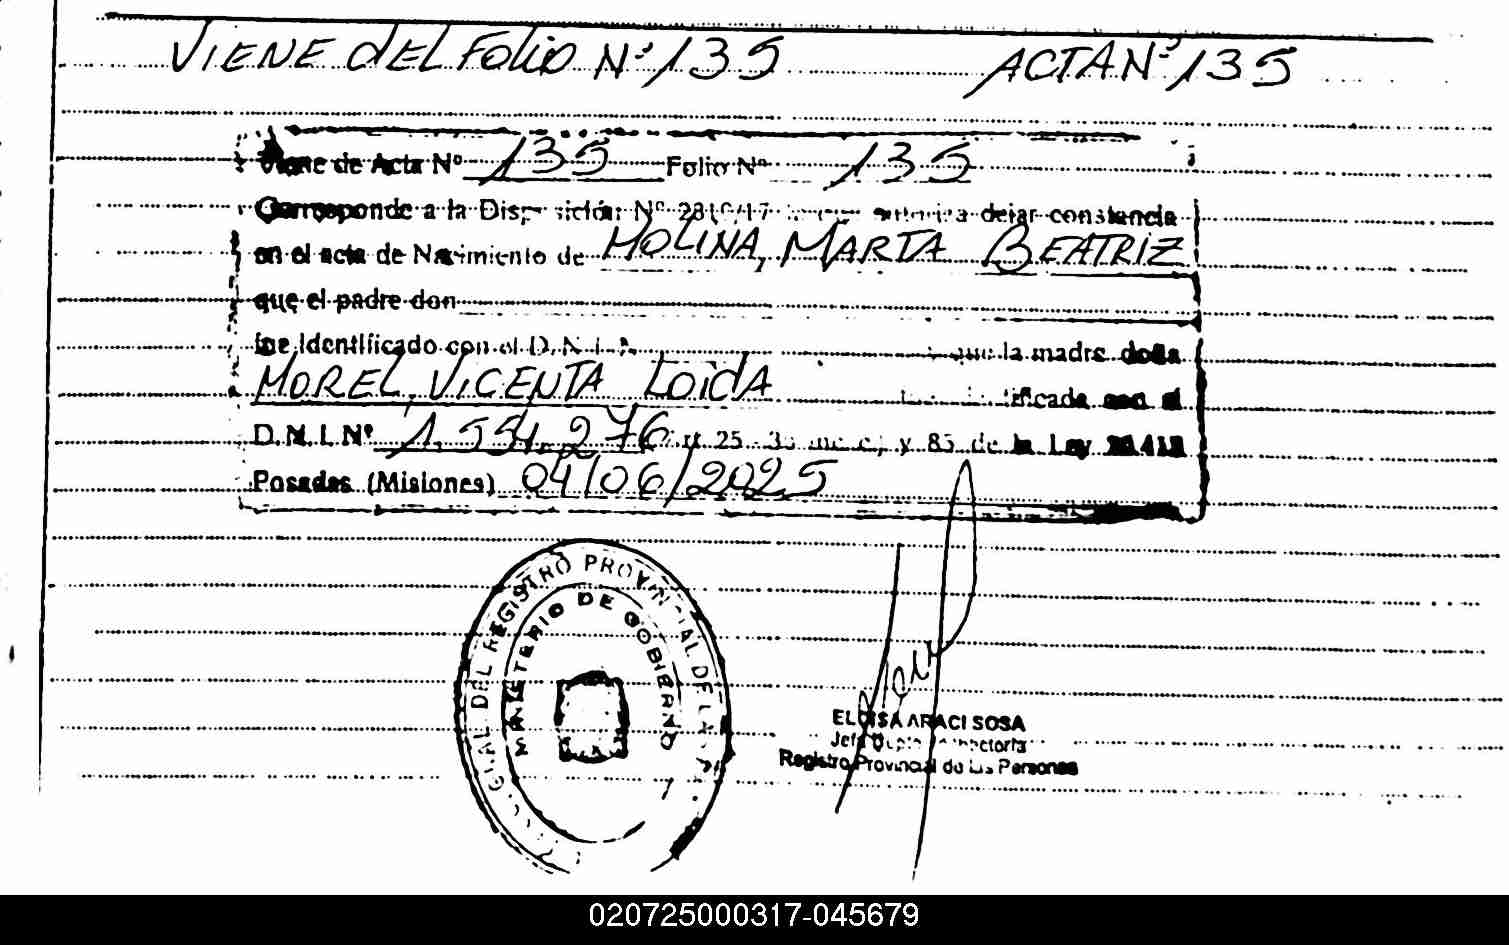 VIENE DEL FOLIO Nº 135 ACTA Nº 135
Viene de Acta Nº 135 Folio Nº 135
Corresponde a la Disposición Nº autoriza dejar constancia
en el acta de Nacimiento de MOLINA, MARTA BEATRIZ
que el padre don
fue identificado con el D.N.I. Nº que la madre doña
MOREL, VICENTA LOIDA identificada con el
D.N.I. Nº 1.554.276 Art 25 - 36 inc c) y 85 de la Ley
Posadas (Misiones) 04/06/2025
DEL REGISTRO PROVINCIAL DE LAS
MINISTERIO DE GOBIERNO
ELOISA ARACI SOSA
Jefa Dpto Inspectoría
Registro Provincial de las Personas
020725000317-045679